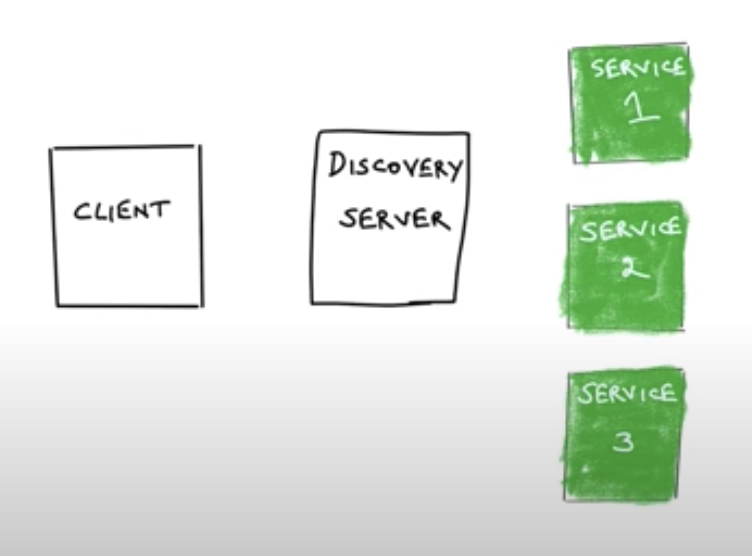 CLIENT
DISCOVERY
SERVER
SERVICE
1
SERVICE
2
SERVICE
3